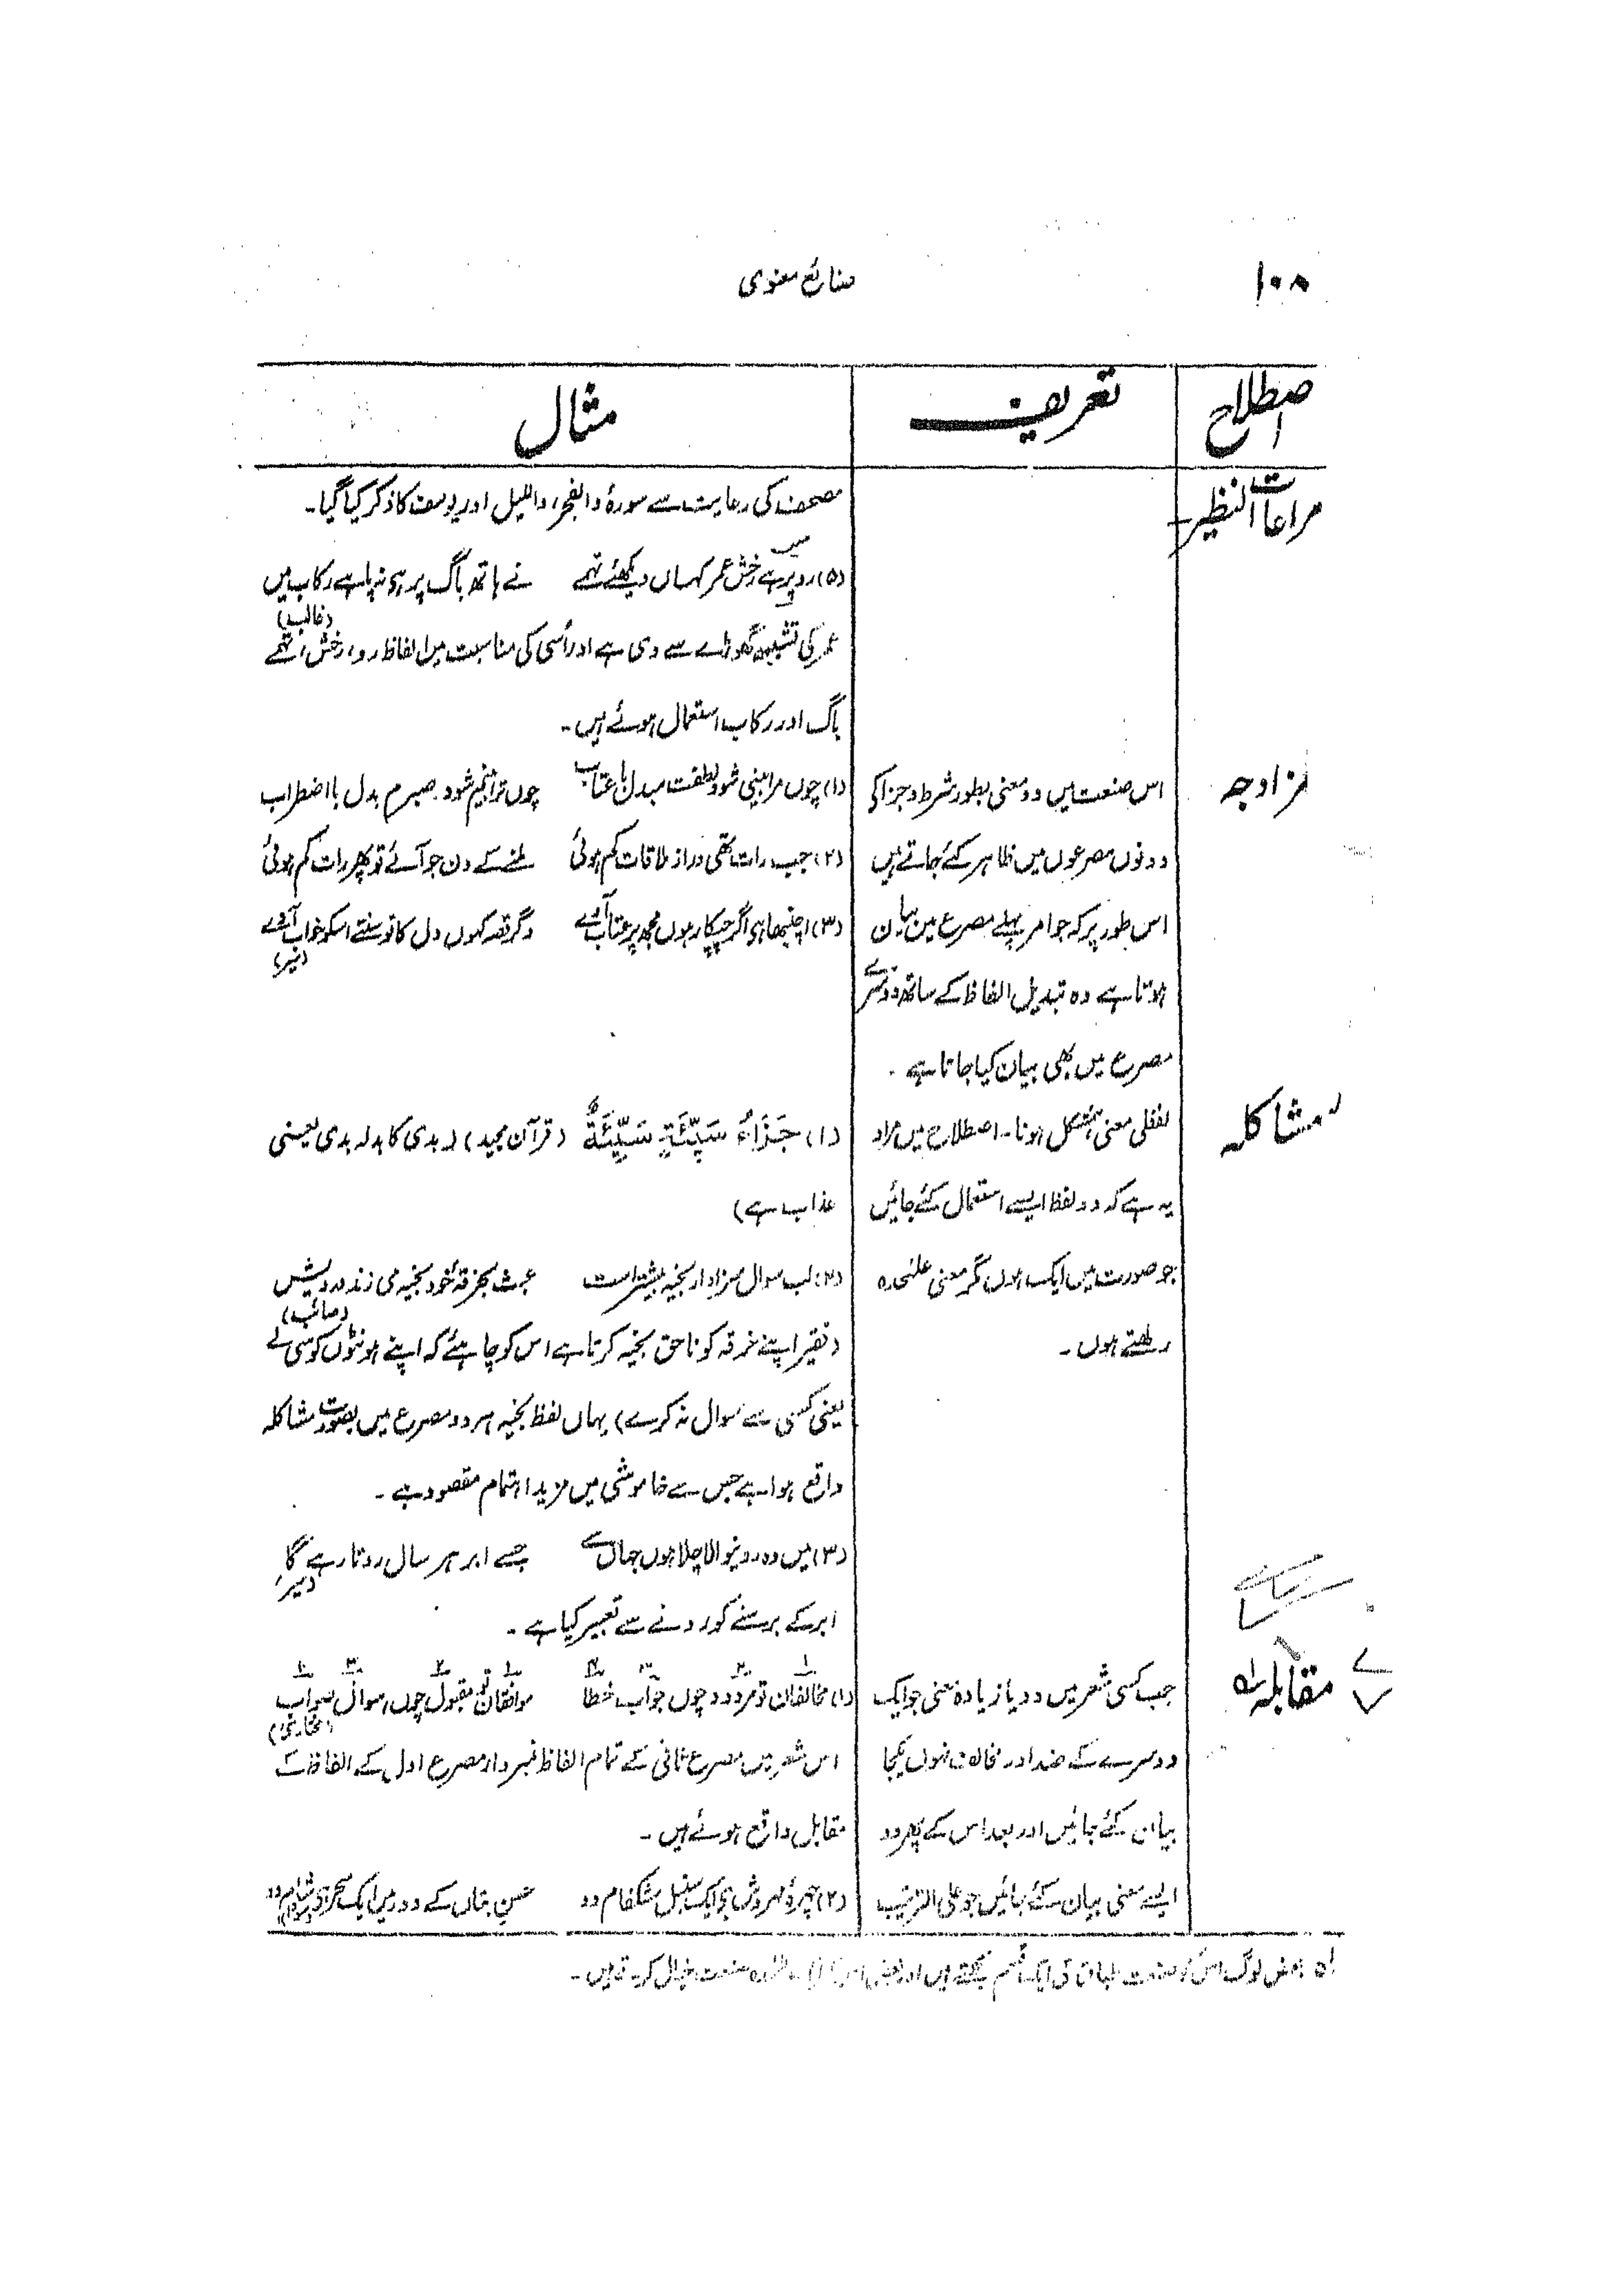 ۱۰۸
صنائع معنوی
اصطلاح
تعریف
مثال
مراعات النظیر
مصحف کی رعایت سے سورۂ والفجر، واللیل اور یوسف کا ذکر کیا گیا۔
(۵) رو میں ہے رخش عمر کہاں دیکھئے تھمے نے ہاتھ باگ پر ہی نہ پا ہے رکاب میں
(غالب)
عمر کی تشبیہ گھوڑے سے دی ہے اور اُسی کی مناسبت میں الفاظ رو، رخش، تھمے
باگ اور رکاب استعمال ہوئے ہیں۔
مزاوجہ
اس صنعت میں دو معنی بطور شرط و جزا کی
دونوں مصرعوں میں ظاہر کئے جاتے ہیں
اس طور پر کہ جو امر پہلے مصرع میں بیان
ہوتا ہے وہ تبدیل الفاظ کے ساتھ دوسرے
مصرع میں بھی بیان کیا جاتا ہے۔
(۱) چوں مرا بینی شود لطفت مبدل با عتاب چوں ترا بینم شود صبرم بدل با اضطراب
(۲) جب رات تھی دراز ملاقات کم ہوئی ملنے کے دن جو آئے تو پھر رات کم ہوئی
(۳) اچنبھا ہی اگر چپکا رہوں مجھ پر عتاب آوے وگر قصہ کہوں دل کا تو سنتے اسکو خواب آوے
(میر)
مشاکلہ
لفظی معنی ہمشکل ہونا۔ اصطلاح میں مراد
یہ ہے کہ دو لفظ ایسے استعمال کئے جائیں
جو صورت میں ایک ہوں مگر معنی علٰحدہ
رکھتے ہوں۔
(۱) جَزَاءُ سَیِّئَةٍ سَیِّئَةٌ (قرآن مجید) (بدی کا بدلہ بدی یعنی
عذاب ہے)
(۲) لب سوال سزاوار بخیہ بیشتر است عبث بخرقۂ خود بخیہ می زند درویش
(صائب)
(فقیر اپنے خرقہ کو ناحق بخیہ کرتا ہے اس کو چاہئے کہ اپنے ہونٹوں کو سی لے
یعنی کسی سے سوال نہ کرے) یہاں لفظ بخیہ ہر دو مصرع میں بصورت مشاکلہ
واقع ہوا ہے جس سے خاموشی میں مزید اہتمام مقصود ہے۔
(۳) میں وہ رونیوالا چلا ہوں جہاں سے جسے ابر ہر سال روتا رہے گا
(میر)
ابر کے برسنے کو رونے سے تعبیر کیا ہے۔
مقابلہ ؎۱
جب کسی شعر میں دو یا زیادہ معنی جو ایک
دوسرے کے ضد اور مخالف نہوں یکجا
بیان کئے جائیں اور بعد اس کے پھر دو
ایسے معنی بیان کئے جائیں جو علی الترتیب
(۱) مخالفان تو مردود چوں جواب خطا موافقان تو مقبول چوں سوال صواب
اس شعر میں مصرع ثانی کے تمام الفاظ نمبر وار مصرع اول کے الفاظ کے
مقابل واقع ہوئے ہیں۔
(۲) چہرۂ مہروش ہی ایک سنبل مشکفام دو حسن بتاں کے دور میں ایک سحر ہی شام دو
؎۱ بعض لوگ اس کو صنعت طباق کی ایک قسم سمجھتے ہیں اور بعض صنعت خیال کرتے ہیں۔